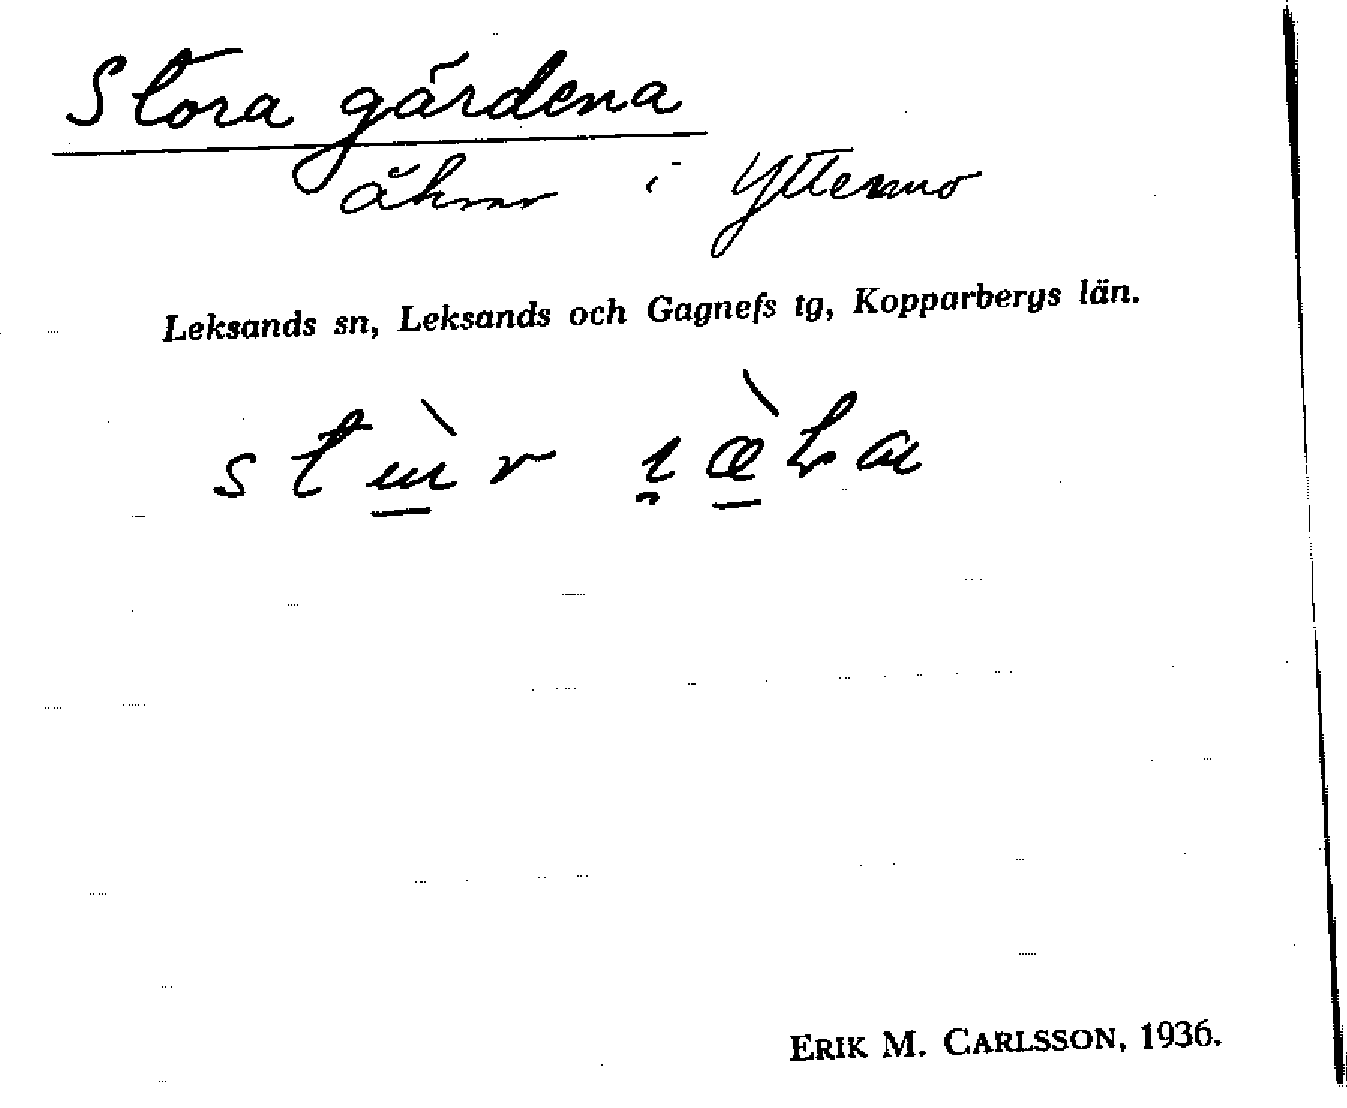 Stora gärdena
åkrar i Yttermo
Leksands sn, Leksands och Gagnefs tg, Kopparbergs län.
ERIK M. CARLSSON, 1936.